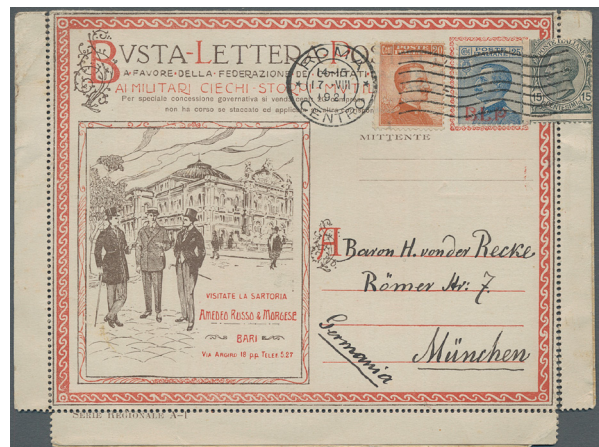 BVSTA-LETTERA PO
A FAVORE DELLA FEDERAZIONE DEI COMITATI
AI MILITARI CIECHI STO
Per speciale concessione governativa si vende
non ha corso se staccato ed
ROMA
14-15
17 VIII
CENTRO
POSTE
B.L.P.
15
MITTENTE
VISITATE LA SARTORIA
AMEDEO RUSSO & MORGESE
BARI
VIA ARGIRO 18 p.p. TELEF. 5.27
A Baron H. von der Recke
Römer Str: 7.
München
Germania
SERIE REGIONALE A-1